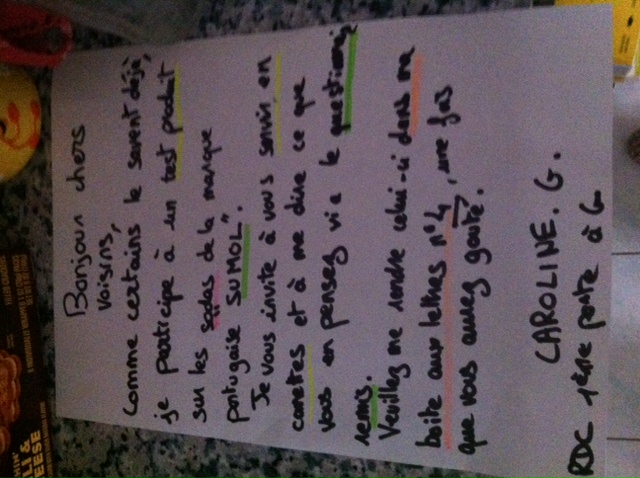 HIN'
LI &
EESE
Bonjour chers
voisins,
Comme certains le savent déjà,
je participe à un test produit
sur les sodas de la marque
portugaise "SUMOL".
Je vous invite à vous servir en
canettes et à me dire ce que
vous en pensez via le questionnaire
remis.
Veuillez me rendre celui-ci dans ma
boite aux lettres n°4, une fois
que vous aurez gouté.
CAROLINE. G.
RDC 1ère porte à G